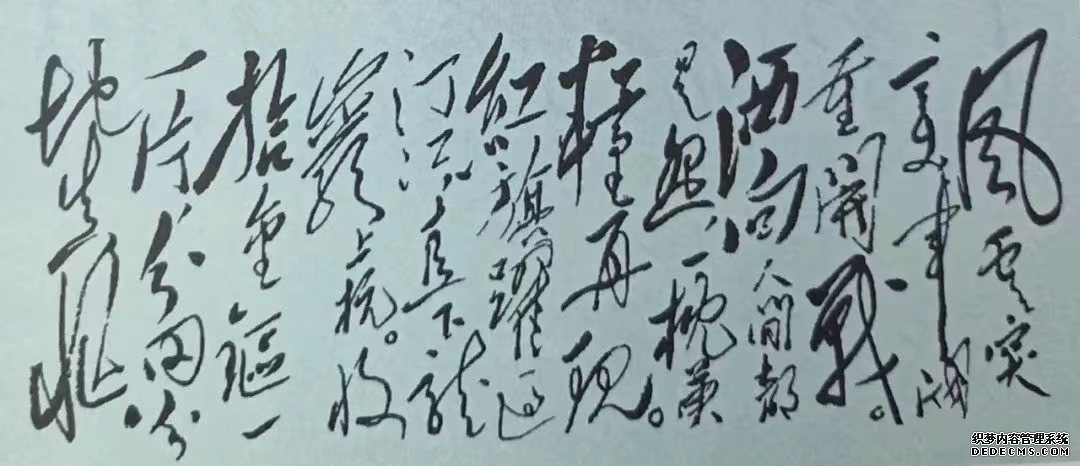 风雲突
变,軍閥
重開戰。
洒向人間都
是怨,一枕黄
粱再現。
紅旗躍過
汀江,直下龍
巖上杭。收
拾金甌一
片,分田分
地真忙
织梦内容管理系统
DEDECMS.COM